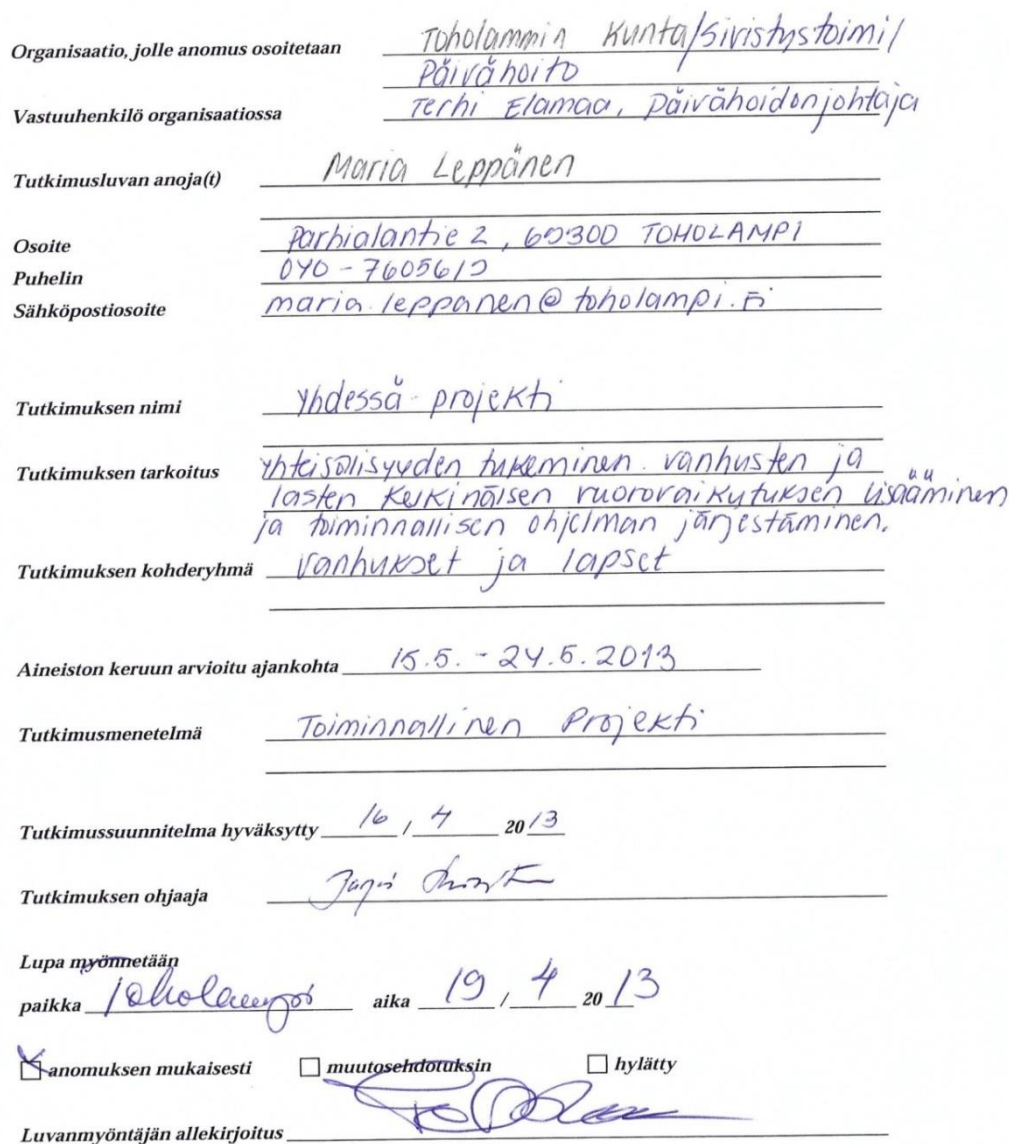 Organisaatio, jolle anomus osoitetaan Toholammin Kunta/Sivistystoimi/
Päivähoito
Vastuuhenkilö organisaatiossa Terhi Elamaa, päivähoidonjohtaja
Tutkimusluvan anoja(t) Maria Leppänen
Osoite Parhialantie 2, 69300 TOHOLAMPI
Puhelin 040-7605615
Sähköpostiosoite maria.leppanen@toholampi.fi
Tutkimuksen nimi Yhdessä-projekti
Tutkimuksen tarkoitus Yhteisölisyyden tukeminen. vanhusten ja
lasten keskinäisen vuorovaikutuksen lisääminen
ja toiminnallisen ohjelman järjestäminen.
Tutkimuksen kohderyhmä Vanhukset ja lapset
Aineiston keruun arvioitu ajankohta 15.5. - 24.5.2013
Tutkimusmenetelmä Toiminnallinen Projekti
Tutkimussuunnitelma hyväksytty 16 / 4 2013
Tutkimuksen ohjaaja
Lupa myönnetään
paikka Toholampi aika 19 / 4 2013
anomuksen mukaisesti muutosehdotuksin hylätty
Luvanmyöntäjän allekirjoitus